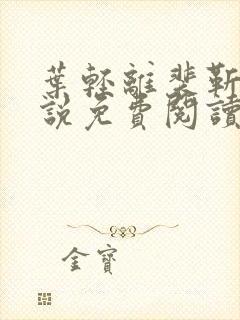 葉輕離裴靳
說免費閱讀
金寶